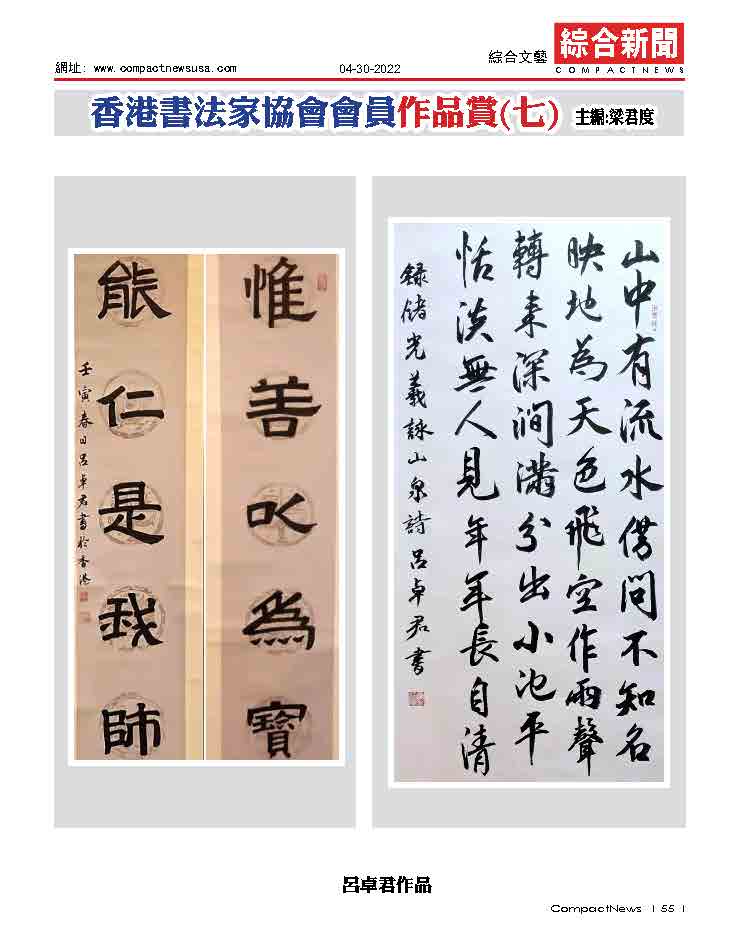 網址: www.compactnewsusa.com
04-30-2022
綜合文藝
綜合新聞
COMPACTNEWS
香港書法家協會會員作品賞(七)
主編:梁君度
惟善以為寶
能仁是我師
壬寅春日呂卓君書於香港
山中有流水借問不知名
映地為天色飛空作雨聲
轉來深澗滿分出小池平
恬淡無人見年年長自清
錄儲光羲詠山泉詩呂卓君書
呂卓君作品
CompactNews | 55 |